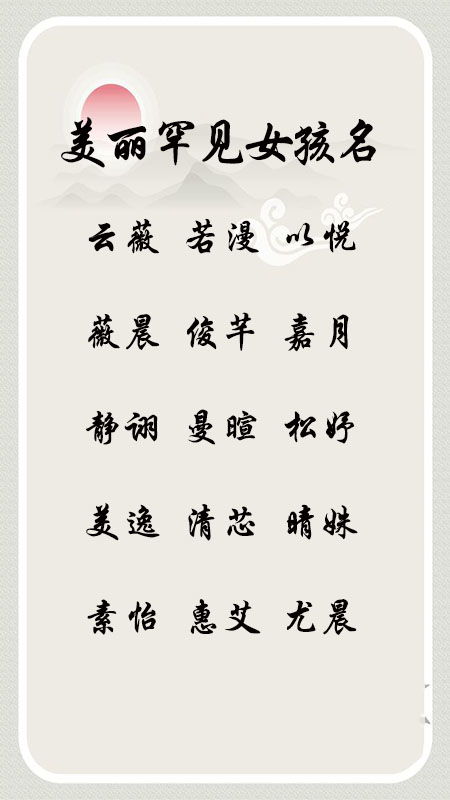 美丽罕见女孩名
云薇 若漫 以悦
薇晨 俊芊 嘉月
静诩 曼暄 松妤
美逸 清芯 晴姝
素怡 惠艾 尤晨